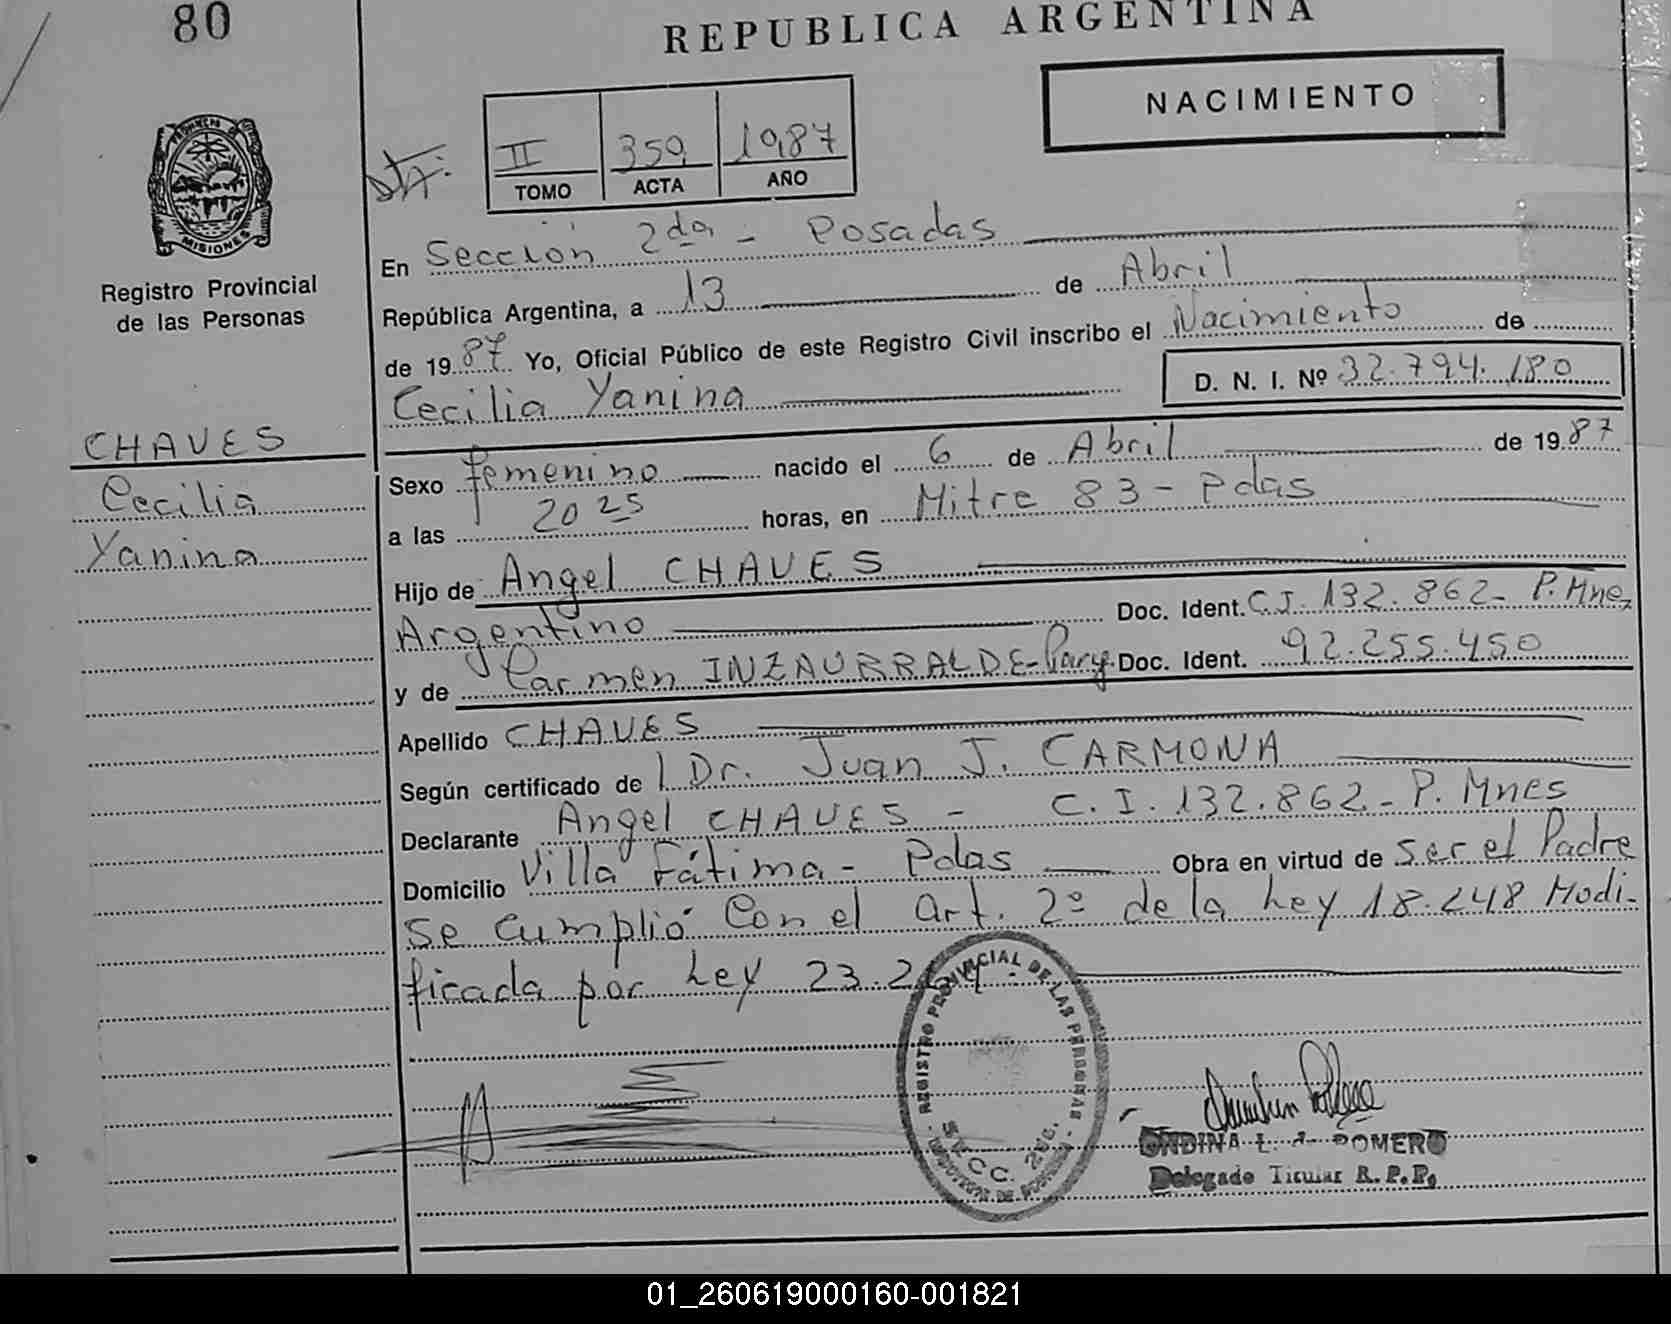 80
REPUBLICA ARGENTINA
NACIMIENTO
II 359 1987
TOMO ACTA AÑO
PROVINCIA DE
MISIONES
Registro Provincial
de las Personas
En Sección 2da - Posadas
República Argentina, a 13 de Abril
de 1987 Yo, Oficial Público de este Registro Civil inscribo el Nacimiento de
Cecilia Yanina D. N. I. Nº 32.794.180
CHAVES
Cecilia
Yanina
Sexo femenino nacido el 6 de Abril de 1987
a las 20 25 horas, en Mitre 83 - Pdas
Hijo de Angel CHAVES
Argentino Doc. Ident. C.I. 132.862 - P. Mnes
y de Carmen INZAURRALDE - Parg. Doc. Ident. 92.255.450
Apellido CHAVES
Según certificado de l Dr. Juan J. CARMONA
Declarante Angel CHAVES - C.I. 132.862 - P. Mnes
Domicilio Villa Fátima - Pdas Obra en virtud de ser el Padre
Se cumplió con el art. 2º de la Ley 18.248 Modi-
ficada por Ley 23.264.
REGISTRO PROVINCIAL DE LAS PERSONAS
SECC. 2da.
ONDINA L. A. ROMERO
Delegado Titular R.P.P.
01_260619000160-001821